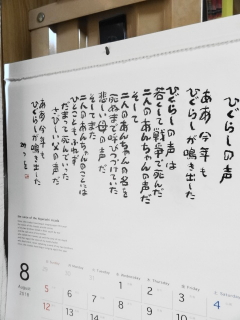 ひぐらしの声
ああ今年も
ひぐらしが鳴き出した
ひぐらしの声は
若くして戦争で死んだ
二人のあんちゃんの声だ
そして
二人のあんちゃんの名を
死ぬまで呼びつづけていた
悲しい母の声だ
そしてまた
二人のあんちゃんのことには
ひとこともふれず
だまって死んでいった
さびしい父の声だ
ああ今年も
ひぐらしが鳴き出した
みつを
8
August
2018
Sunday
Monday
Tuesday
Wednesday
Thursday
Friday
Saturday
1
2
3
4
5
6
7
8
9
10
11
12
13